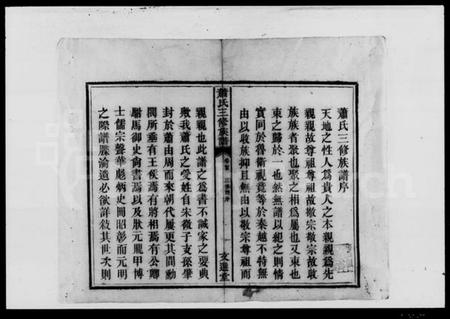 蕭氏三修族譜序
天地之性人為貴人之本親親為先
親親故尊祖尊祖故敬宗敬宗故收
族族者聚也聚之相為屬也又束也
束之歸於一也然無譜以紀之則情
實同於魯衛視竟等於秦越不特無
由以收族抑且無由以敬宗尊祖而
蕭氏三修族譜
卷首
文選堂
親親也此譜之為書不誠家之要典
歟我蕭氏之受姓自宋微子支孫肇
封於蕭由周而來朝代屢更其間勳
閥所垂有王侯焉有將相焉有公卿
駙馬御史尚書焉以及狀元鼎甲博
士儒宗聲華彪炳史冊昭彰而元明
之際譜牒淪遺必欲詳敘其世次則